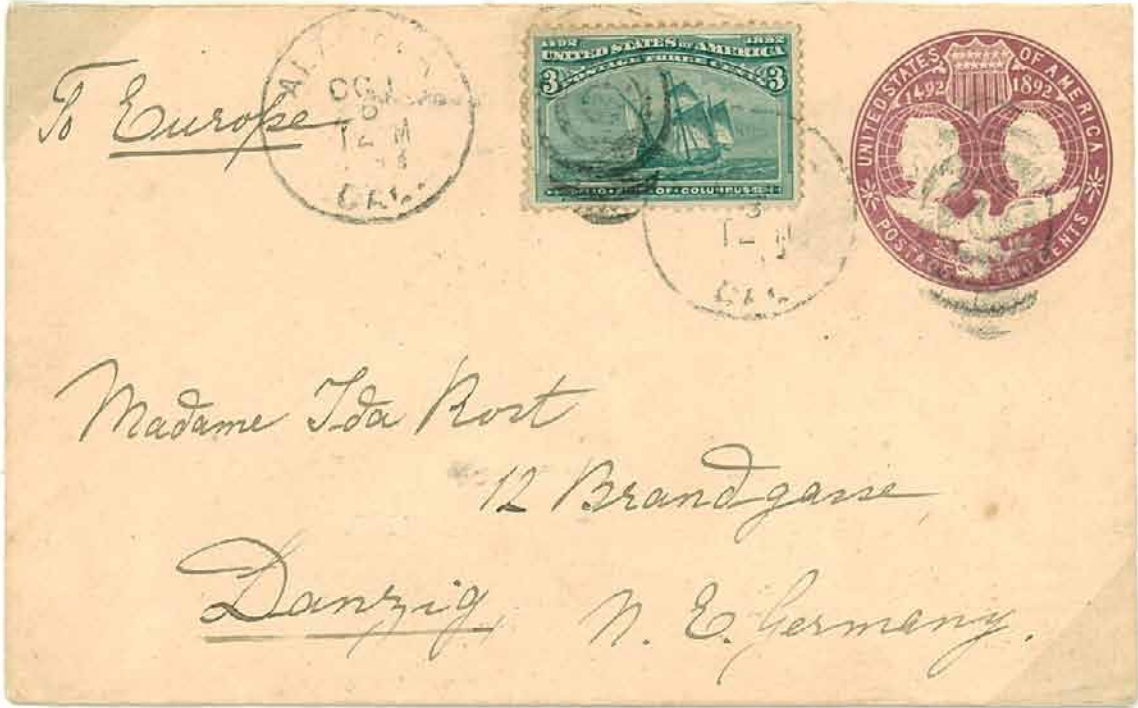 To Europe
CAL.
1492 1892
UNITED STATES OF AMERICA
POSTAGE THREE CENTS
3 3
OF COLUMBUS
12 M
CAL.
UNITED STATES OF AMERICA
1492 1892
POSTAGE TWO CENTS
Madame Ida Rost
12 Brandgasse
Danzig, N. E. Germany.